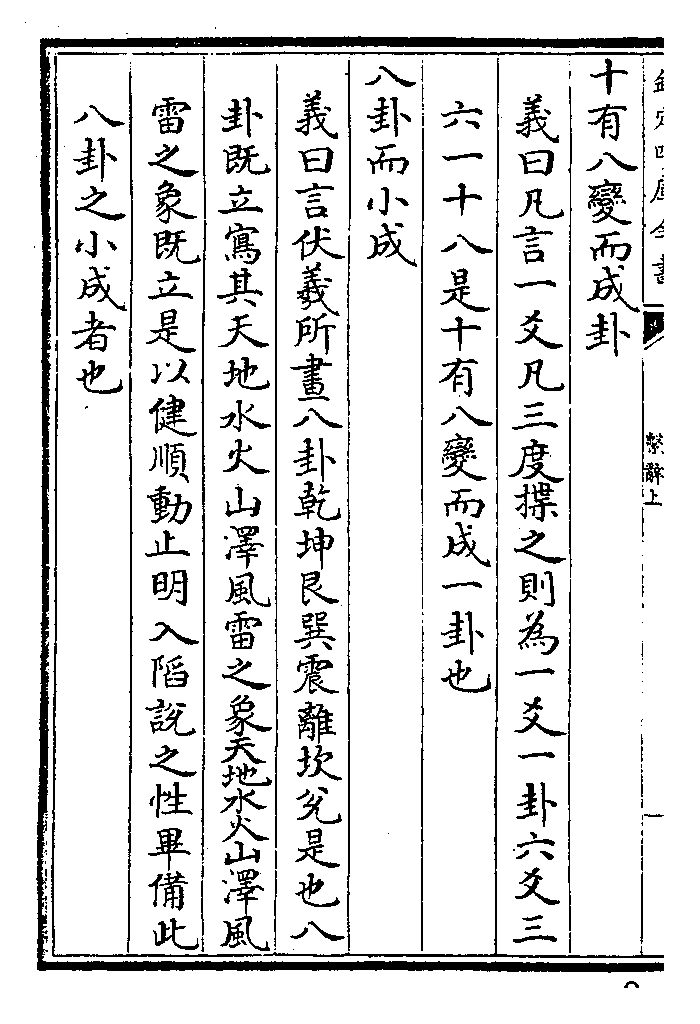 欽定四庫全書
繫辭上
一
十有八變而成卦
義曰凡言一爻凡三度揲之則為一爻一卦六爻三
六一十八是十有八變而成一卦也
八卦而小成
義曰言伏羲所畫八卦乾坤艮巽震離坎兌是也八
卦既立寫其天地水火山澤風雷之象天地水火山澤風
雷之象既立是以健順動止明入陷説之性畢備此
八卦之小成者也